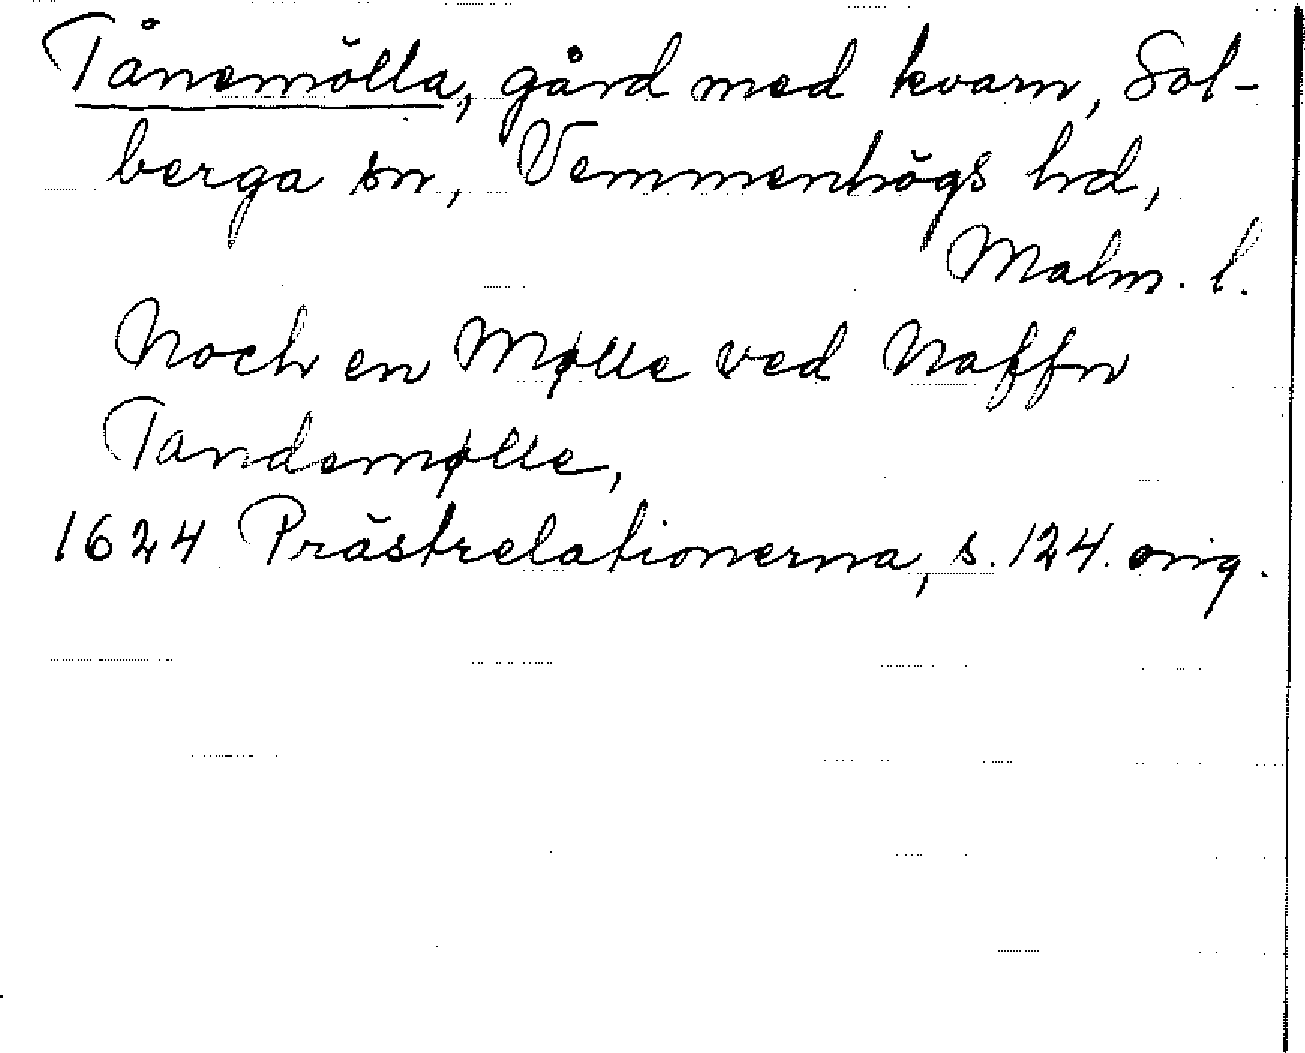 Tånemölla, gård med kvarn, Sol-
berga sn, Vemmenhögs hd,
Malm. l.
Noch en Mølle ved Naffn
Tandemølle,
1624 Prästrelationerna, s. 124. orig.